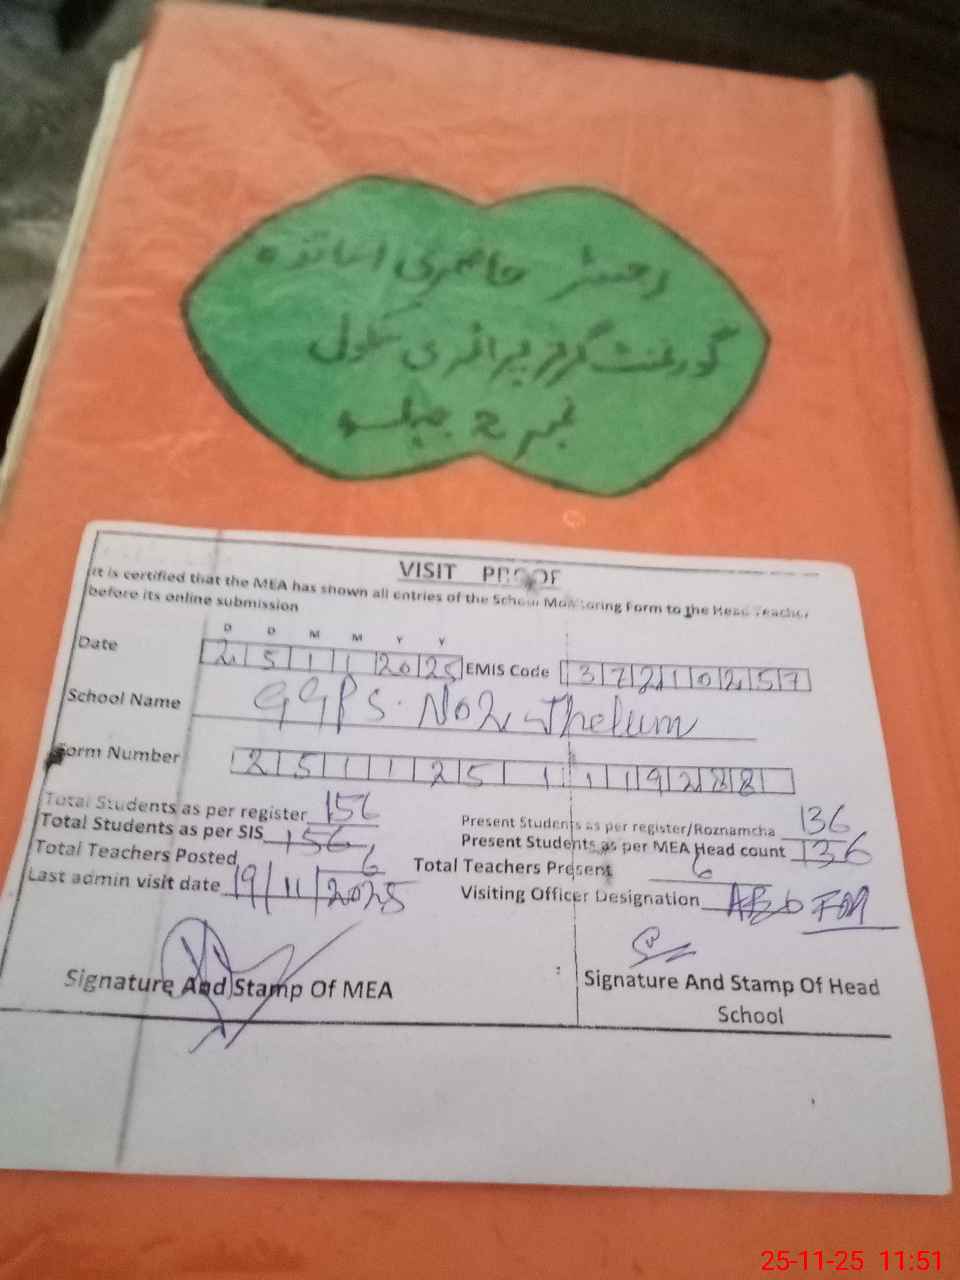 رجسٹر حاضری اساتذہ
گورنمنٹ گرلز پرائمری سکول
نمبر 2 جہلم
VISIT PROOF
It is certified that the MEA has shown all entries of the School Monitoring Form to the Head Teacher
before its online submission
D D M M Y Y
Date 2 5 1 1 20 25 EMIS Code 3 7 2 1 0 2 5 7
School Name GGPS. No 2 Jhelum
Form Number 2 5 1 1 2 5 1 1 1 9 2 8 8
Total Students as per register 156 Present Students as per register/Roznamcha 136
Total Students as per SIS 156 Present Students as per MEA Head count 136
Total Teachers Posted 6 Total Teachers Present 6
Last admin visit date 19/11/2025 Visiting Officer Designation
Signature And Stamp Of MEA Signature And Stamp Of Head
School
25-11-25 11:51